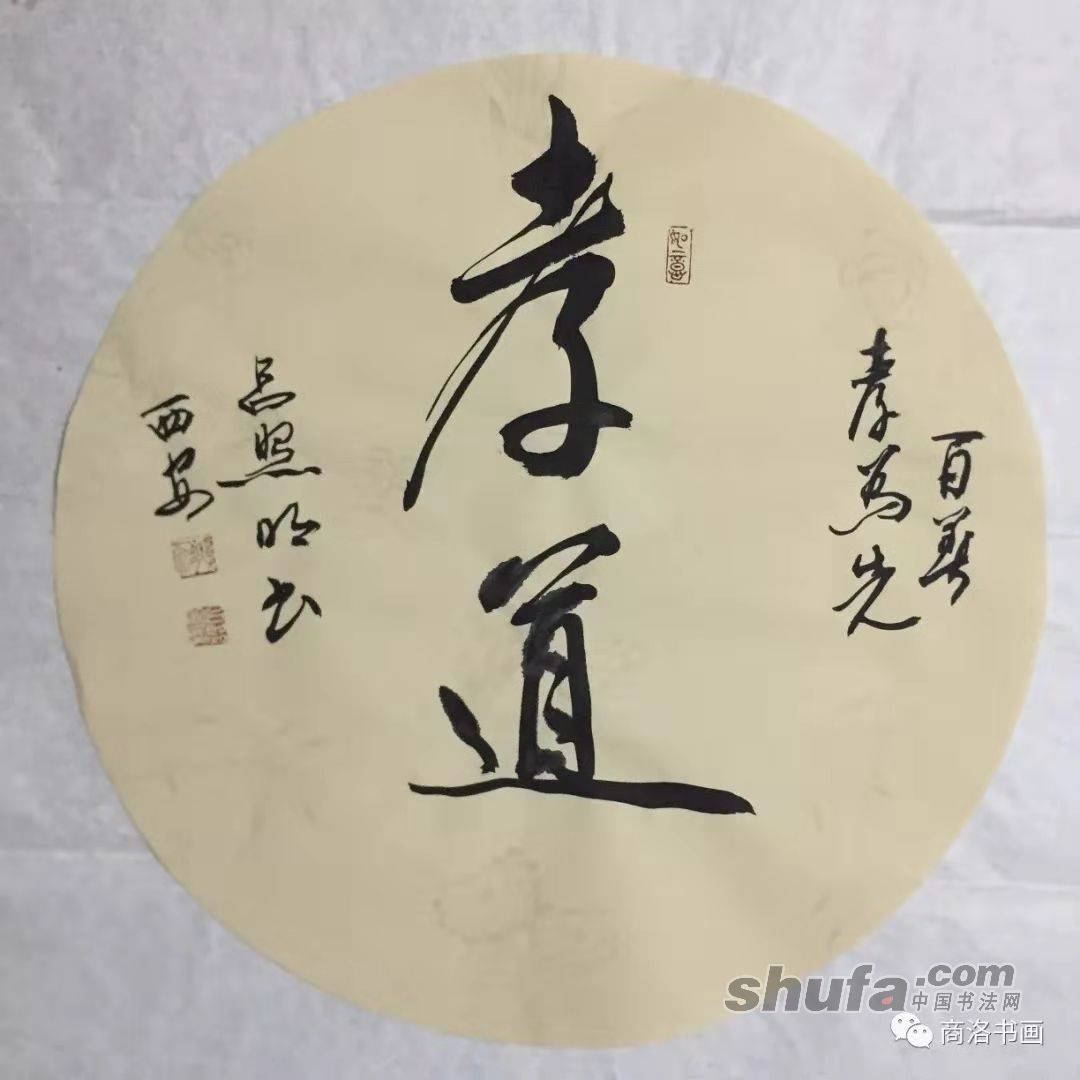 百善
孝为先
如意
孝道
吕照明书
西安
shufa.com
中国书法网
商洛书画